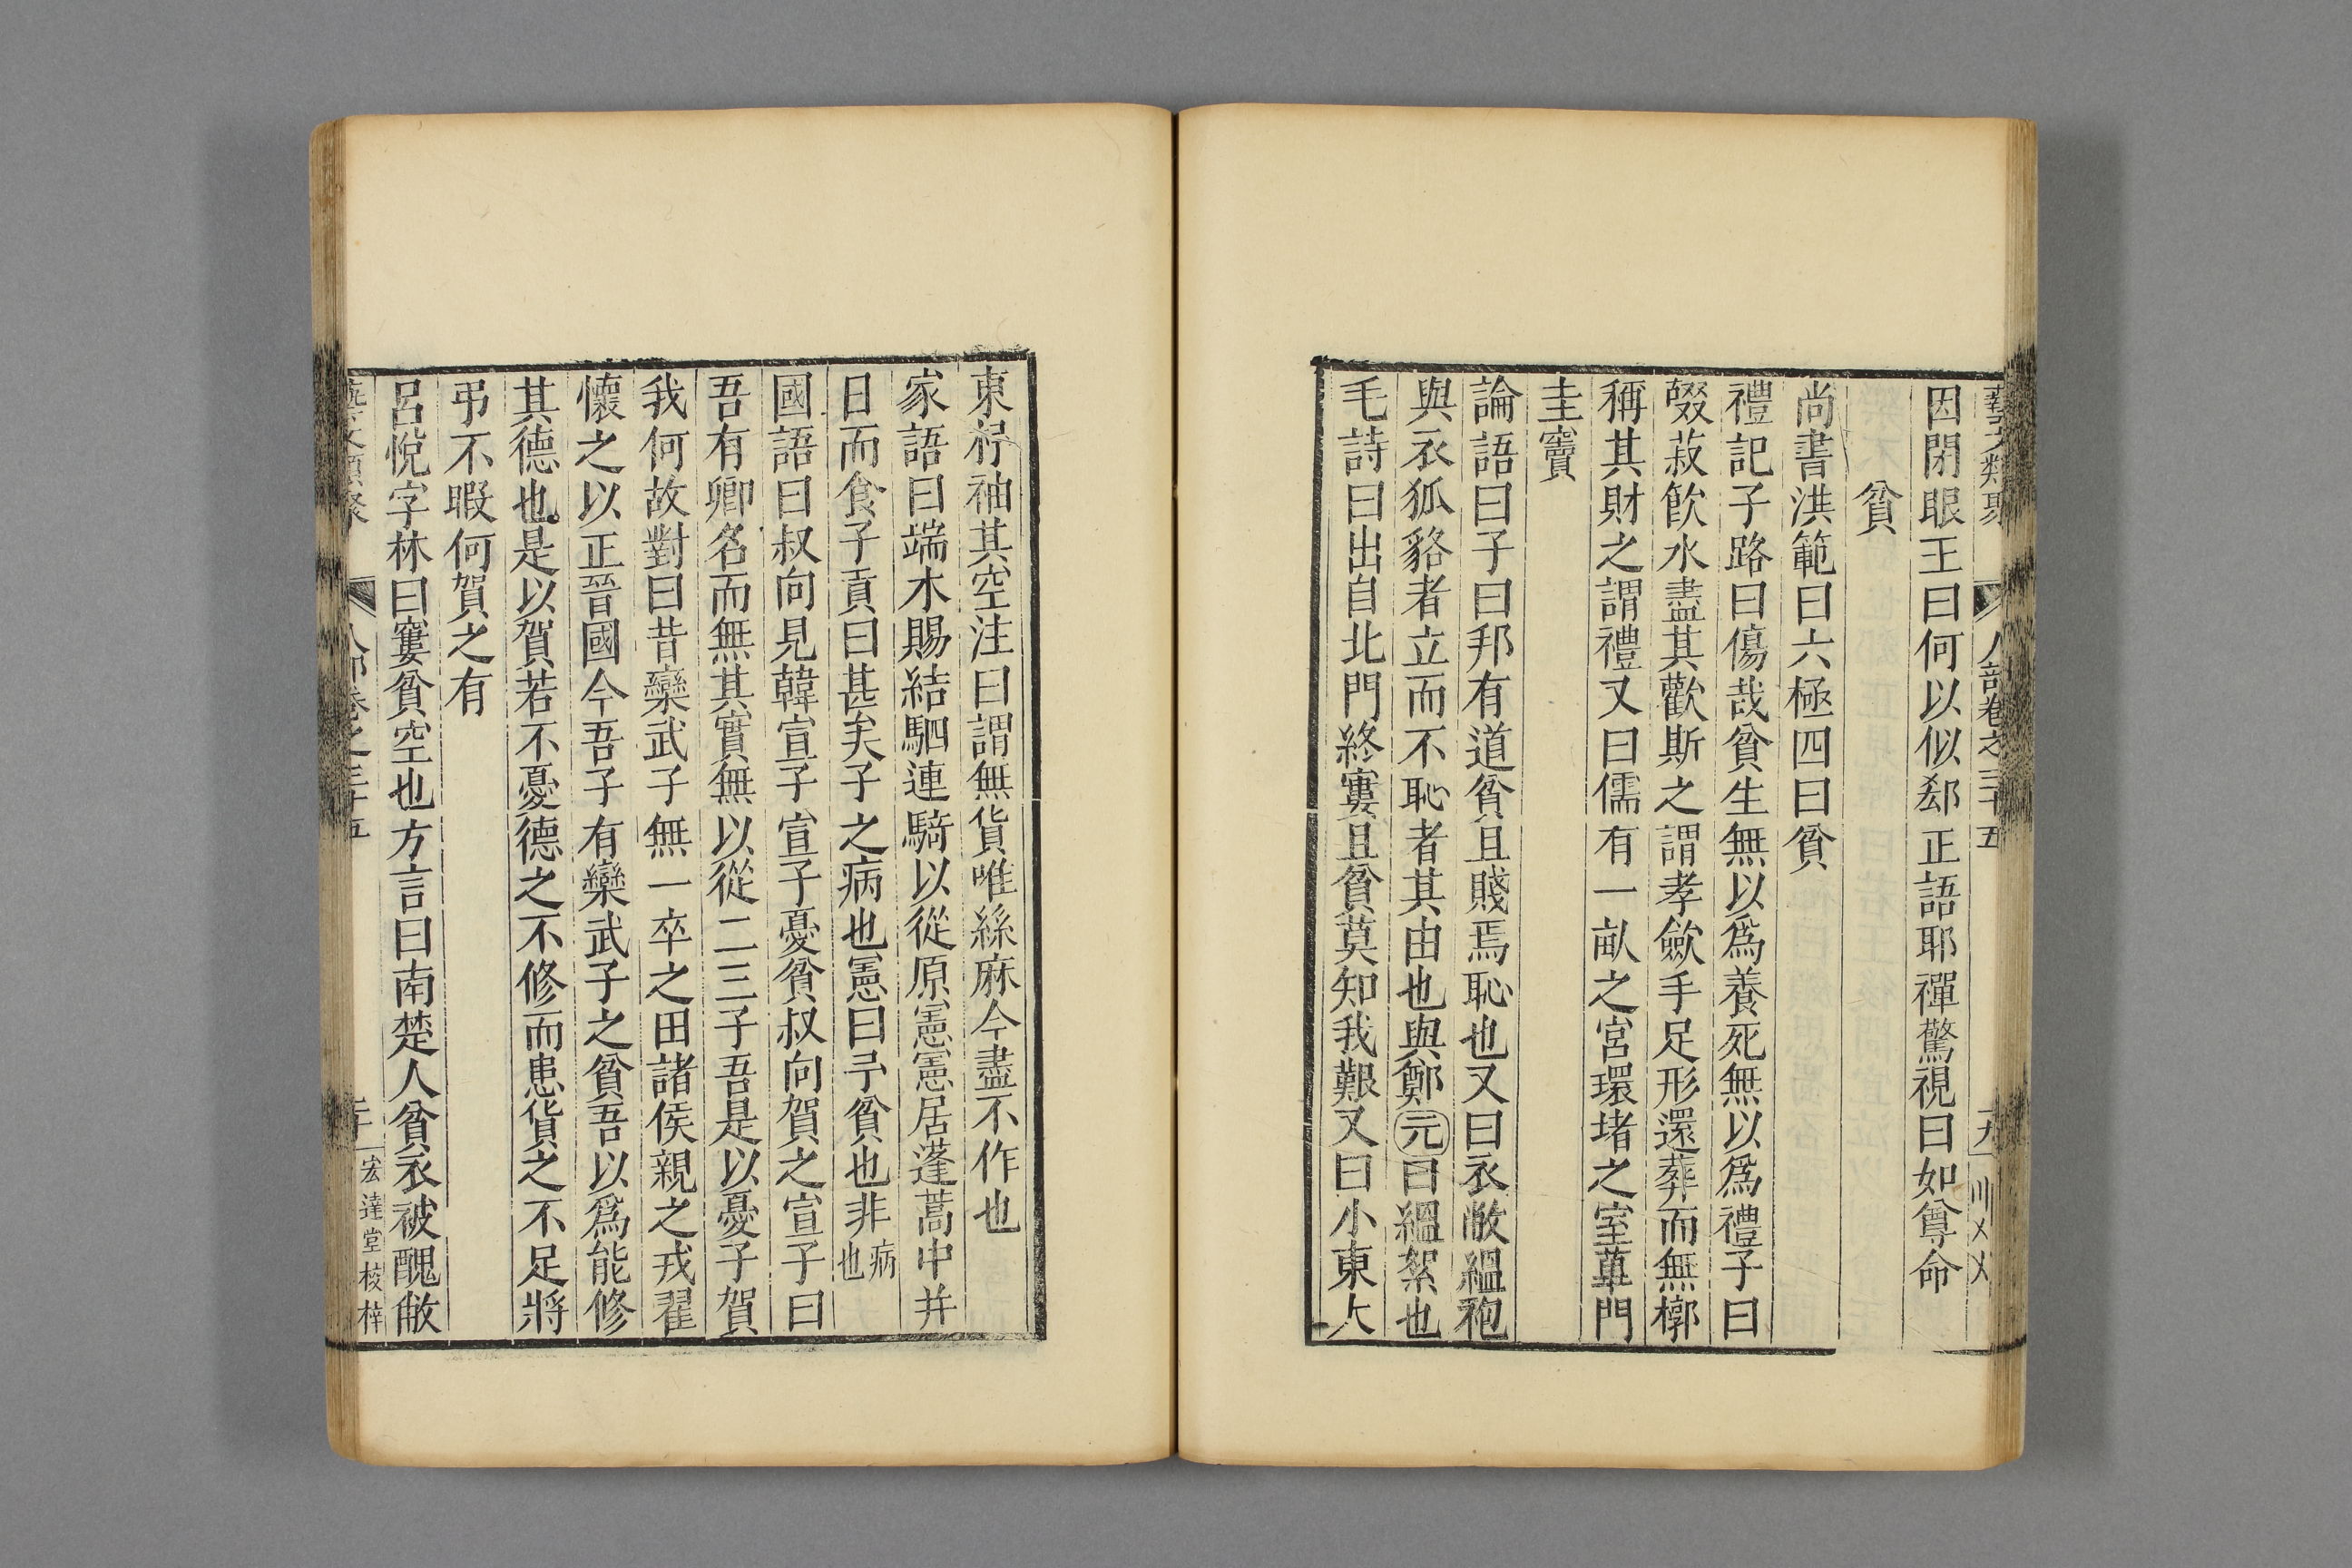 因閉眼王曰何以似郄正語耶禪驚視曰如尊命
貧
尚書洪範曰六極四曰貧
禮記子路曰傷哉貧生無以爲養死無以爲禮子曰
啜菽飮水盡其歡斯之謂孝斂手足形還葬而無槨
稱其財之謂禮又曰儒有一畝之宮環堵之室蓽門
圭竇
論語曰子曰邦有道貧且賤焉恥也又曰衣敝縕袍
與衣狐貉者立而不恥者其由也與鄭元曰縕絮也
毛詩曰出自北門終窶且貧莫知我艱又曰小東大
東杼袖其空注曰謂無貨唯絲麻今盡不作也
家語曰端木賜結駟連騎以從原憲憲居蓬蒿中并
日而食子貢曰甚矣子之病也憲曰予貧也非病也
國語曰叔向見韓宣子宣子憂貧叔向賀之宣子曰
吾有卿名而無其實無以從二三子吾是以憂子賀
我何故對曰昔欒武子無一卒之田諸侯親之戎翟
懷之以正晉國今吾子有欒武子之貧吾以爲能修
其德也是以賀若不憂德之不修而患貨之不足將
弔不暇何賀之有
呂悅字林曰窶貧空也方言曰南楚人貧衣被醜敝
藝文類聚 人部卷之三十五 二十 宏達堂校梓